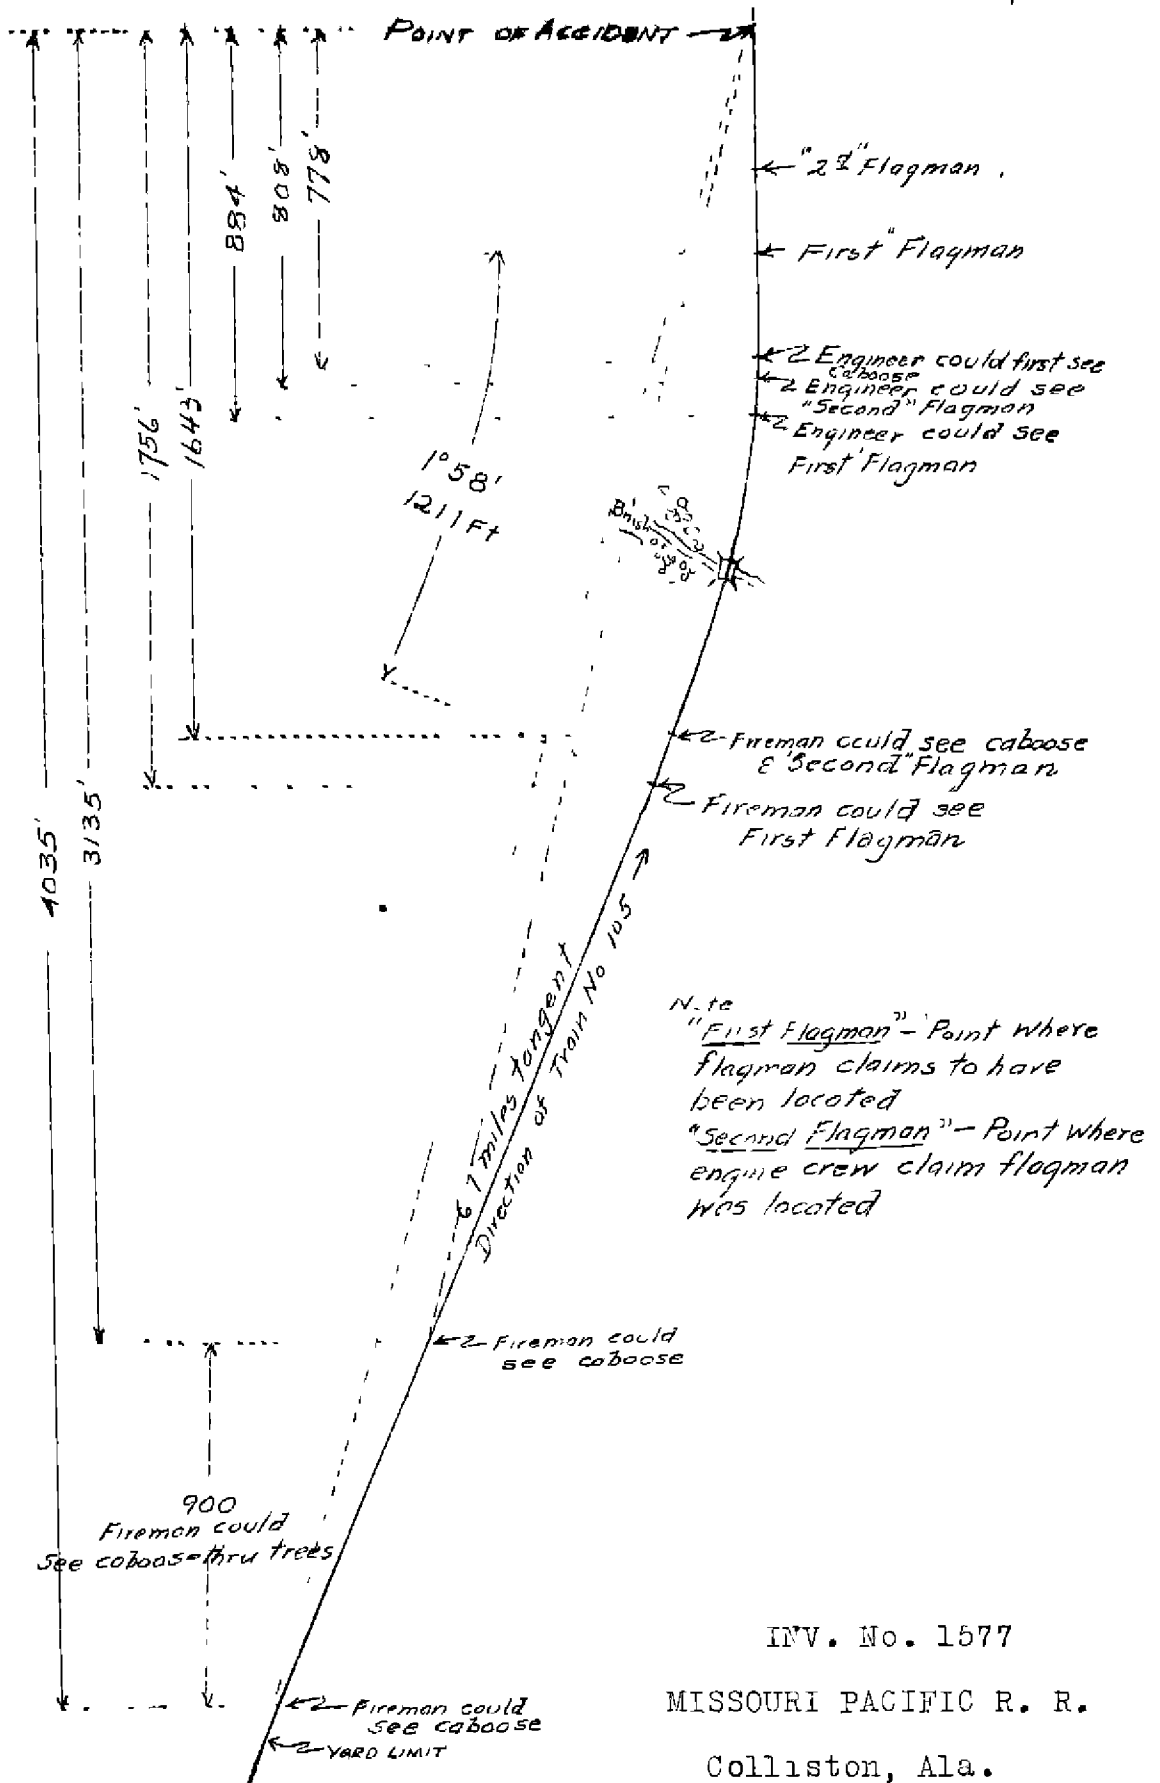 POINT OF ACCIDENT
4035'
3135'
1756'
1643'
884'
808'
778'
"2d" Flagman.
First" Flagman
Engineer could first see
caboose
Engineer could see
"Second" Flagman
Engineer could see
First' Flagman
1°58'
1211 Ft
Brush
Fireman could see caboose
& 'Second" Flagman
Fireman could see
First Flagman
6 7 miles tangent
Direction of Train No 105
Note
"First Flagman" - Point where
flagman claims to have
been located
"Second Flagman" - Point where
engine crew claim flagman
was located
Fireman could
see caboose
900
Fireman could
See caboose thru trees
Fireman could
see caboose
YARD LIMIT
INV. No. 1577
MISSOURI PACIFIC R. R.
Colliston, Ala.